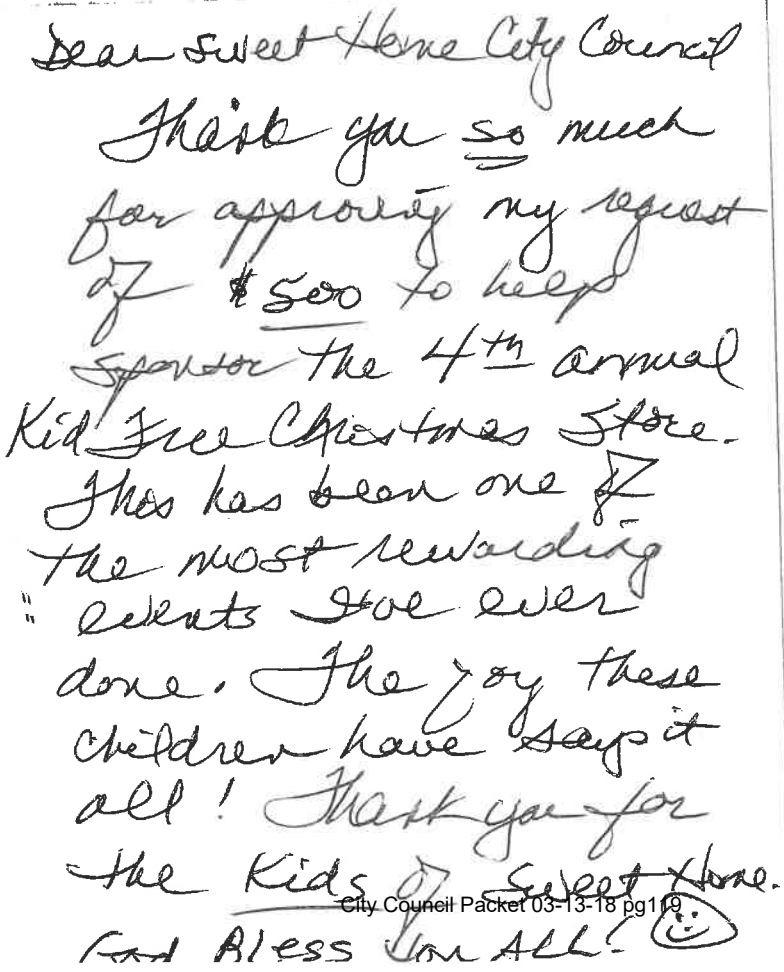 Dear Sweet Home City Council
Thank you so much
for approving my request
of $500 to help
sponsor the 4th annual
Kid Free Christmas Store.
This has been one of
the most rewarding
events I've ever
done. The joy these
children have says it
all! Thank you for
the Kids of Sweet Home.
City Council Packet 03-13-18 pg119
God Bless You All!